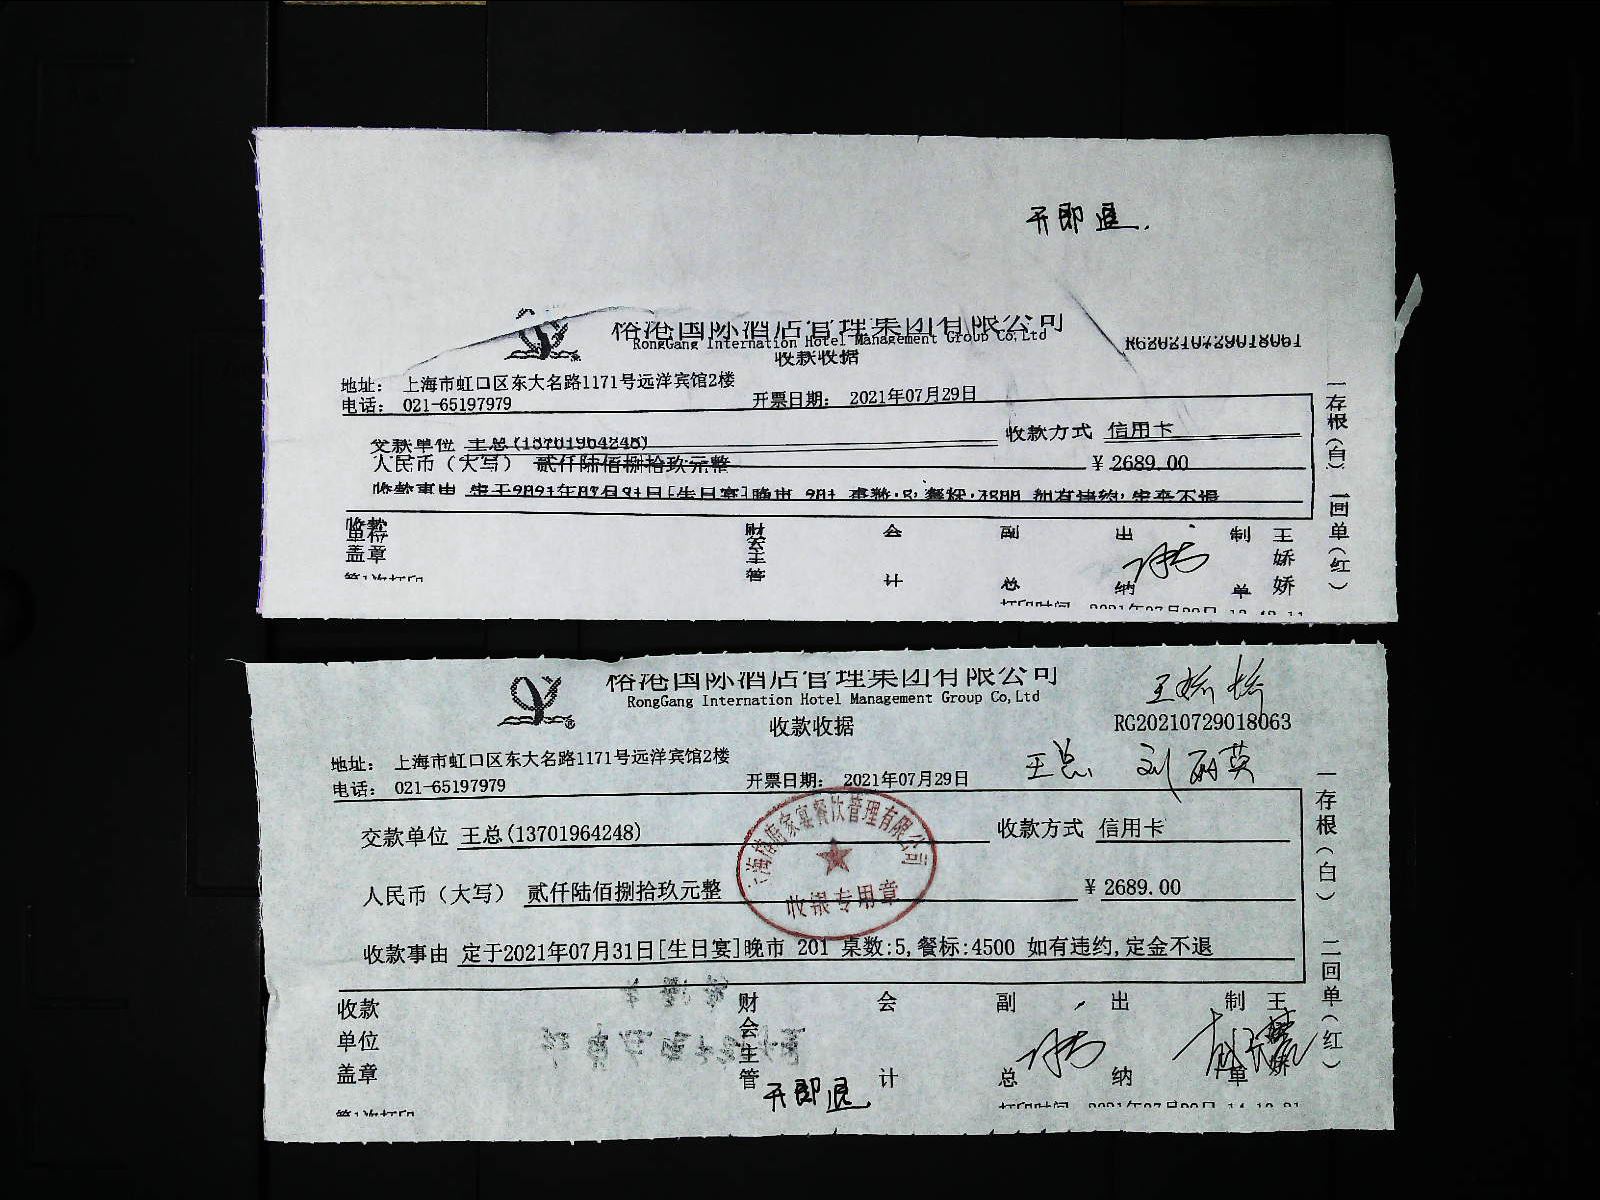 开即退.
榕港国际酒店管理集团有限公司
RongGang Internation Hotel Management Group Co,Ltd
收款收据
RG20210729018061
地址: 上海市虹口区东大名路1171号远洋宾馆2楼
电话: 021-65197979
开票日期: 2021年07月29日
交款单位 王总(13701964248)
收款方式 信用卡
人民币（大写） 贰仟陆佰捌拾玖元整
¥ 2689.00
收款事由 定于2021年07月31日[生日宴]晚市 201 桌数:5,餐标:4500 如有违约,定金不退
收款单位盖章
财会主管
会计
副总
出纳
制单 王娇娇
一存根（白） 二回单（红）
第1次打印
打印时间
榕港国际酒店管理集团有限公司
RongGang Internation Hotel Management Group Co,Ltd
收款收据
RG20210729018063
王总 刘丽英
地址: 上海市虹口区东大名路1171号远洋宾馆2楼
电话: 021-65197979
开票日期: 2021年07月29日
交款单位 王总(13701964248)
收款方式 信用卡
人民币（大写） 贰仟陆佰捌拾玖元整
¥ 2689.00
收银专用章
收款事由 定于2021年07月31日[生日宴]晚市 201 桌数:5,餐标:4500 如有违约,定金不退
收款单位盖章
财会主管
会计
副总
出纳
制单 王
一存根（白） 二回单（红）
开即退
第1次打印
打印时间